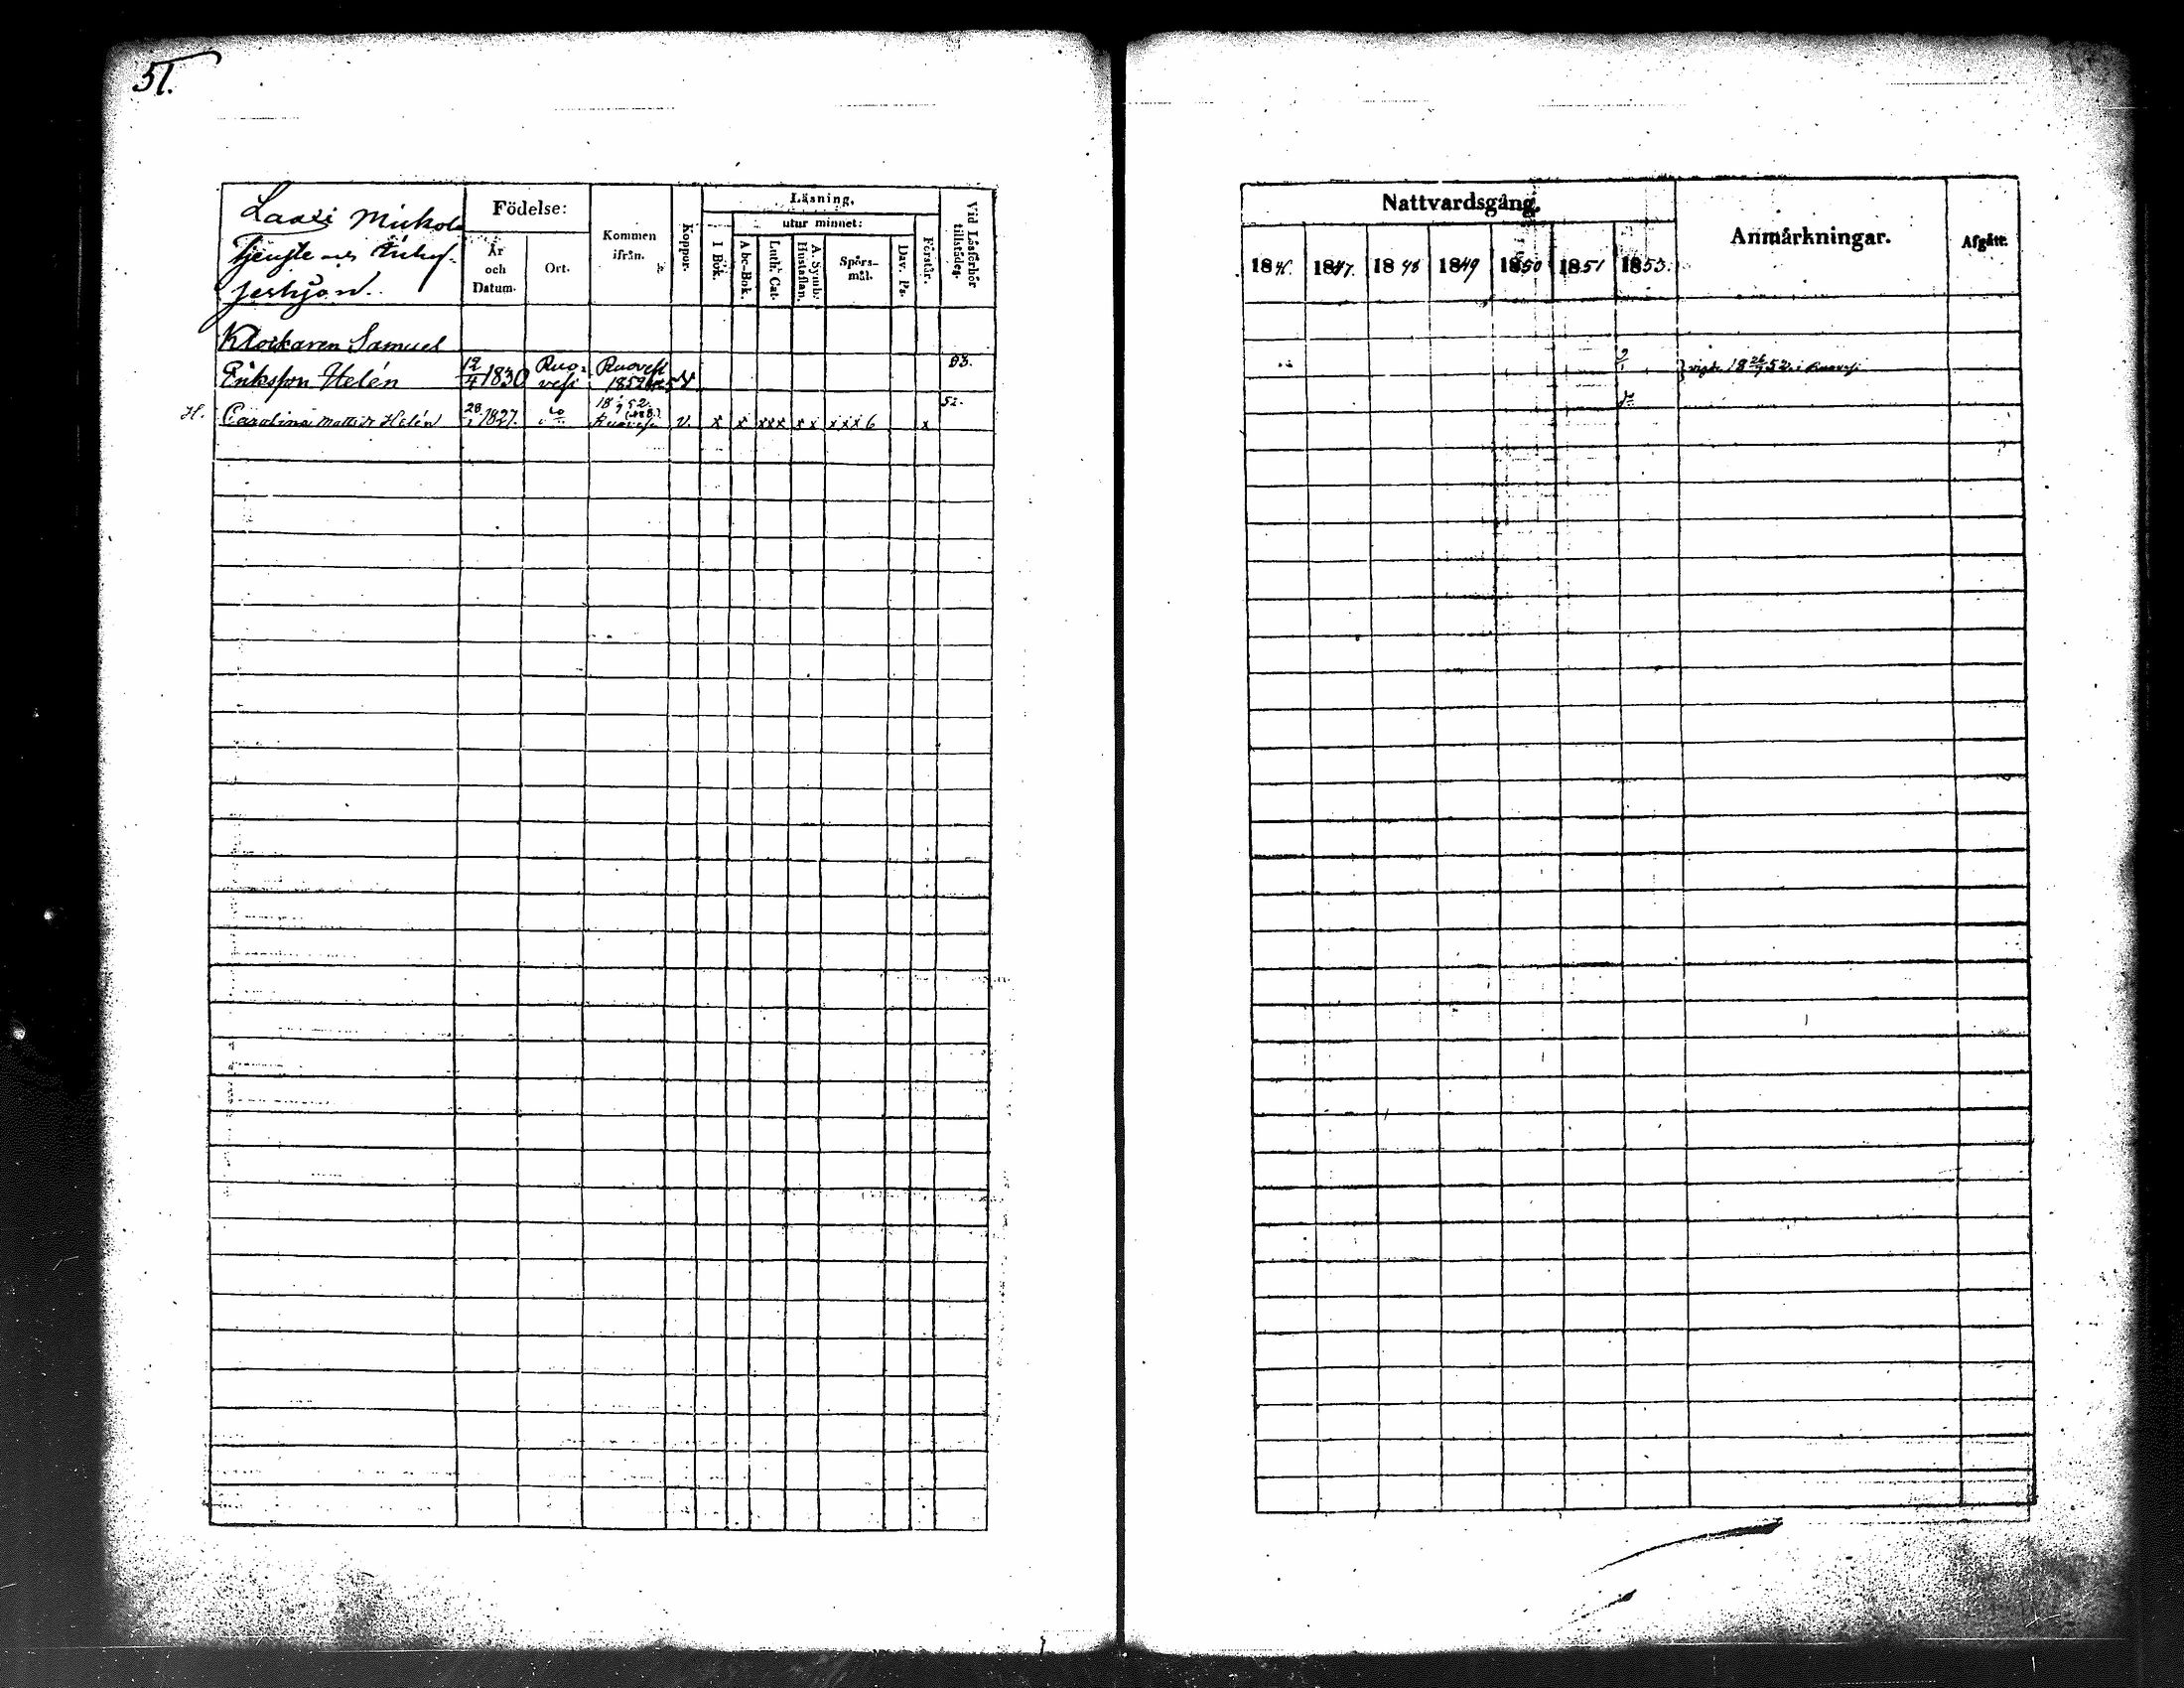 51.
Laasi Mickol
Tjenste
Födelse:
År
och
Datum.
Ort.
Kommen
ifrån.
Koppor.
Läsning,
utur minnet:
I Bok.
Abc-Bok.
Luth. Cat.
A. Symb.
Hustaflan.
Spörs-
mål.
Dav. Ps.
Förstår.
Vid Läsförhör
tillstädes.
Klockaren Samuel
Eriksson Helén 12/4 1830 Ruo-
vesi Ruovesi
1852 V 53.
H. Carolina Matts dr Helén 28/1 1827. do 18 9 52.
Ruovesi v. x x xxx xx xxx6 x 52.
Nattvardsgång.
1846. 1847. 1848 1849 1850 1851 1853.
Anmärkningar.
Afgått.
vigde 18 26/9 52 i Ruovesi
do